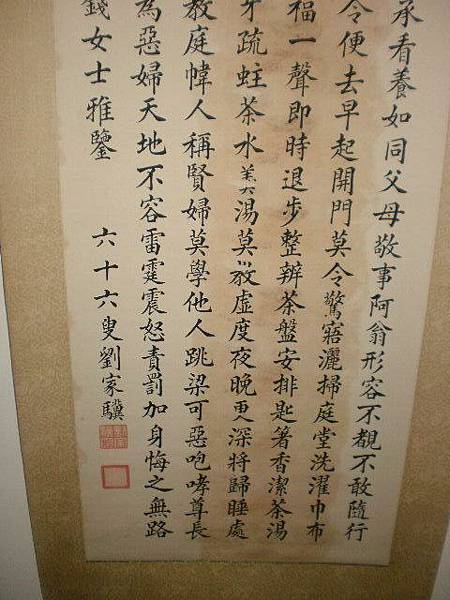 承看養如同父母敬事阿翁形容不覩不敢隨行
令便去早起開門莫令驚寤灑掃庭堂洗濯巾布
福一聲即時退步整辨茶盤安排匙箸香潔茶湯
牙疏蛀茶水羹湯莫教虛度夜晚更深將歸睡處
教庭幃人稱賢婦莫學他人跳梁可惡咆哮尊長
為惡婦天地不容雷霆震怒責罰加身悔之無路
錢女士雅鑒 六十六叟劉家驥